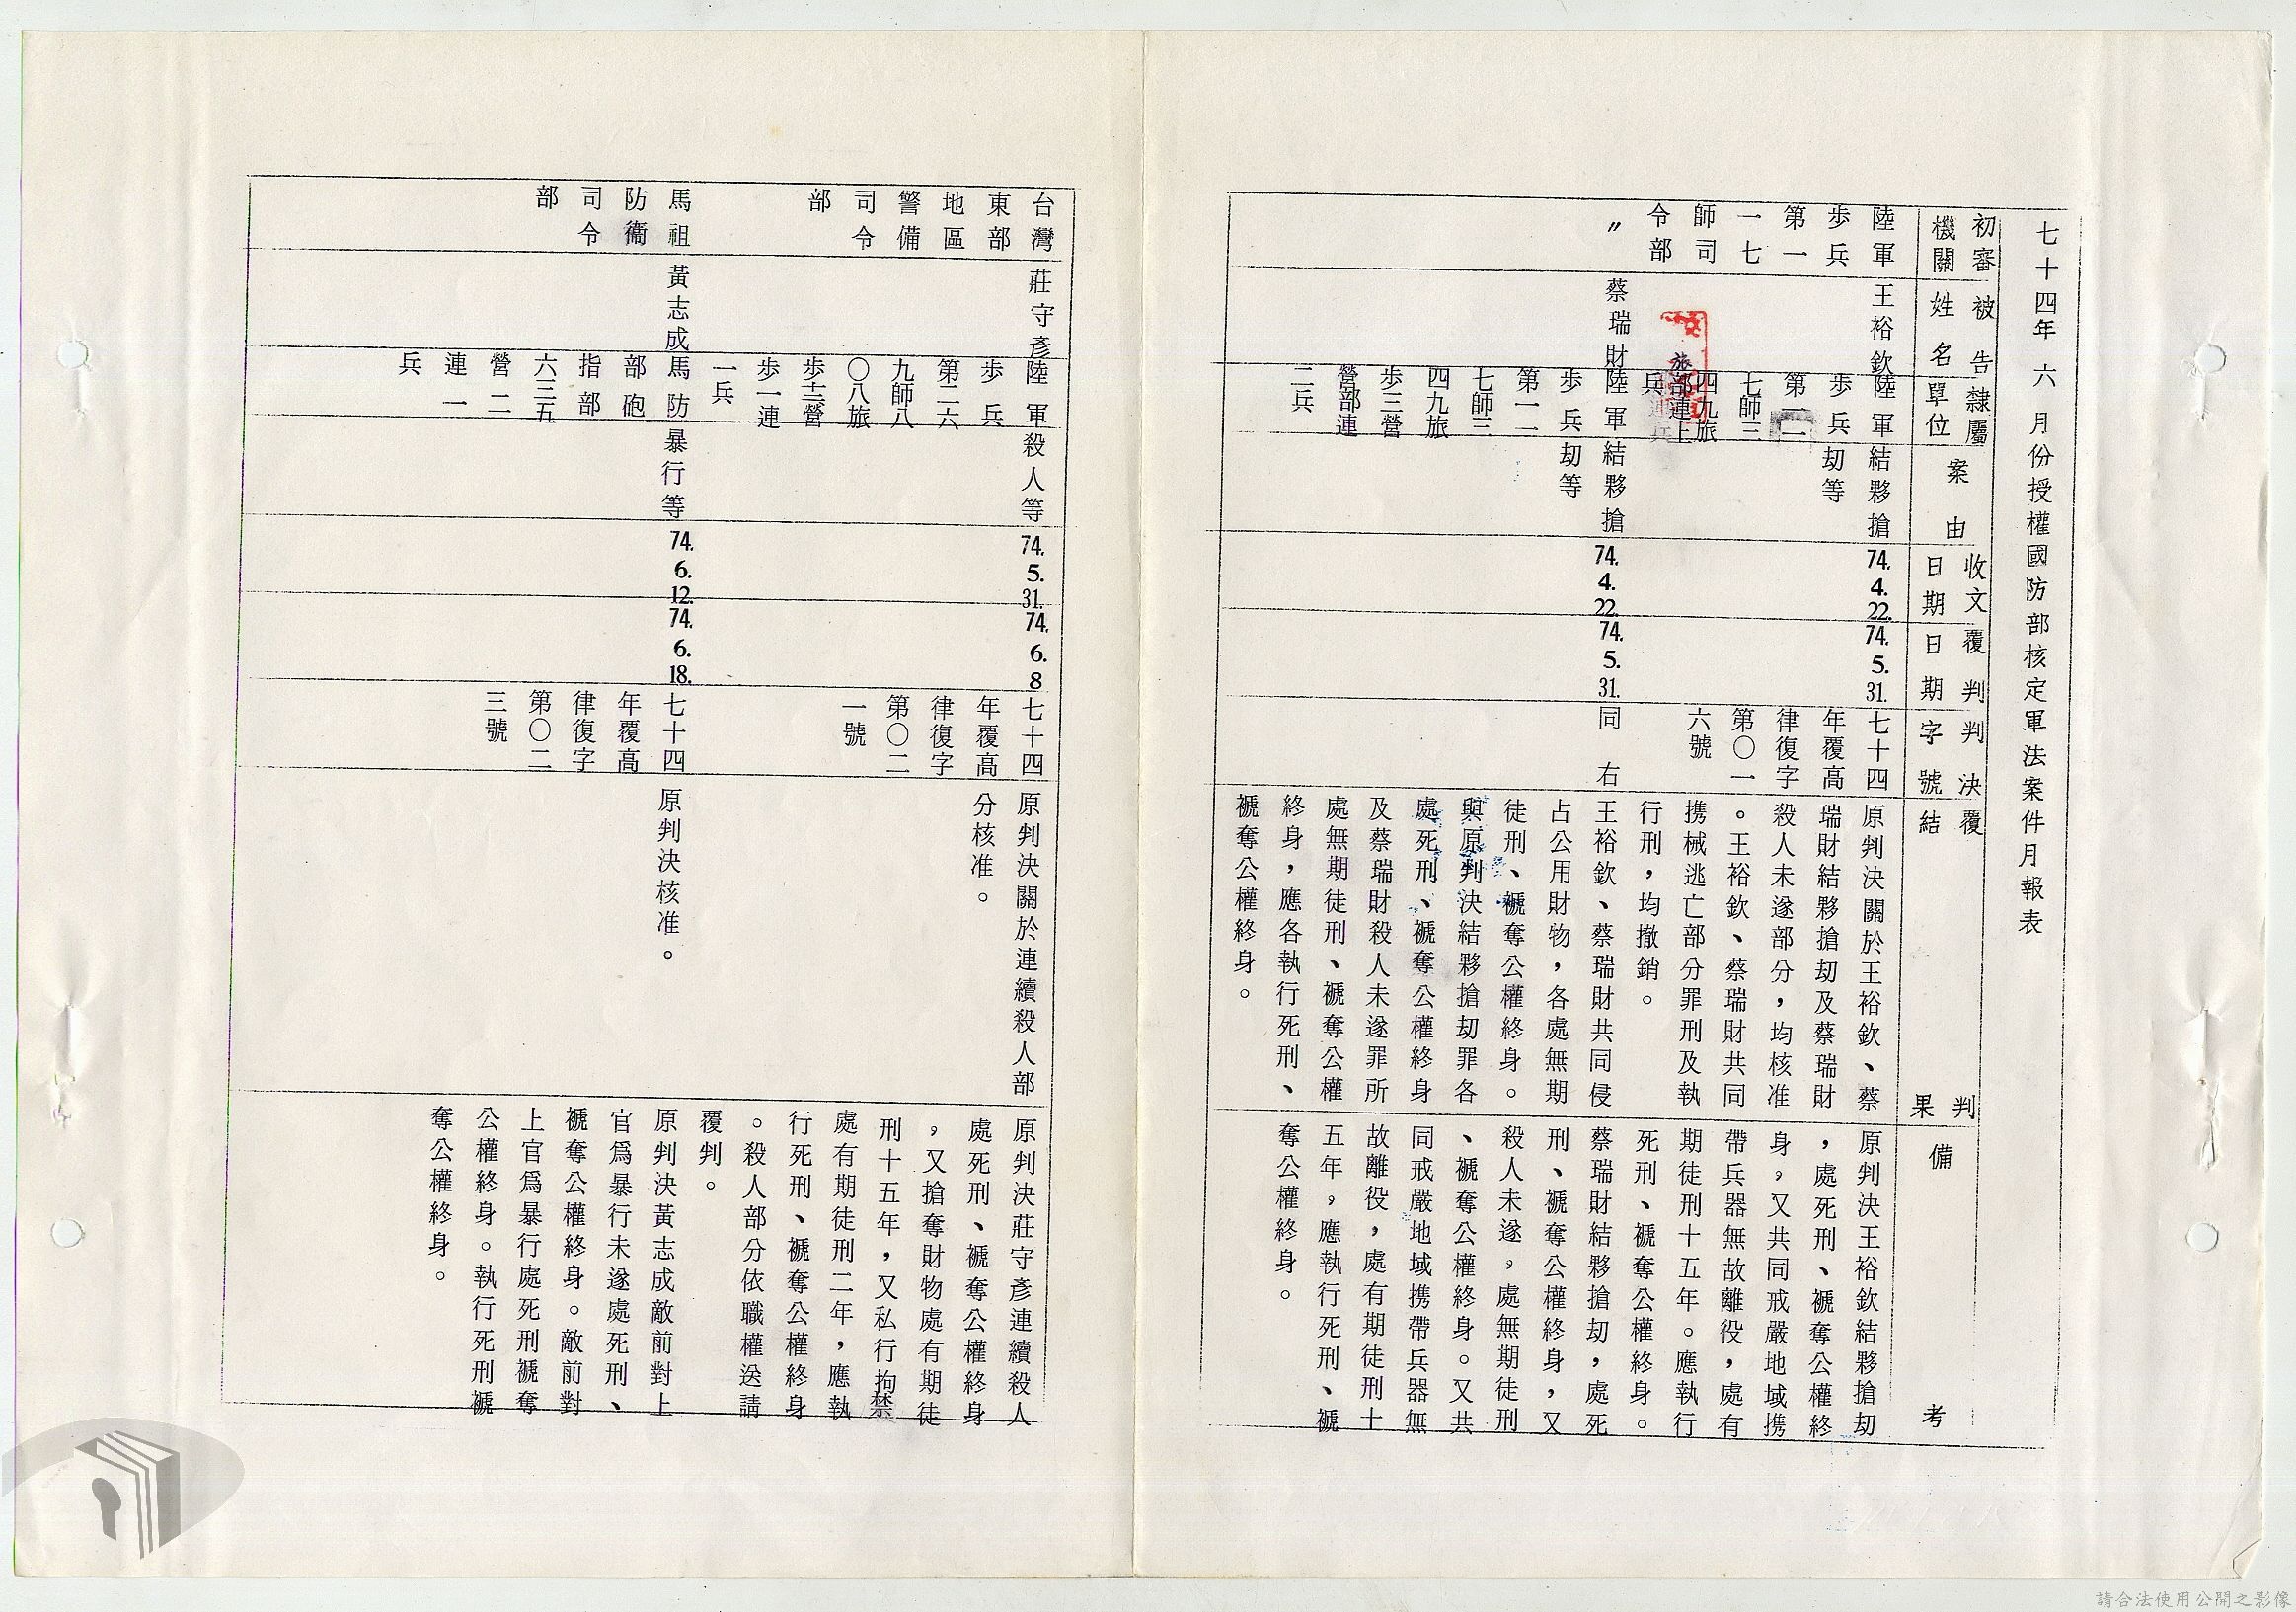 七十四年六月份授權國防部核定軍法案件月報表
初審
機關
被告
姓名
隸屬
單位
案由
收文
日期
覆判
日期
判決
字號
覆判
結果
備考
陸軍
步兵
第一
一七
師司
令部
王裕欽
陸軍
步兵
第一一
七師三
四九旅
旅部連上
兵
結夥搶
劫等
74.
4.
22.
74.
5.
31.
七十四
年覆高
律復字
第〇一
六號
原判決關於王裕欽、蔡
瑞財結夥搶劫及蔡瑞財
殺人未遂部分,均核准
。王裕欽、蔡瑞財共同
携械逃亡部分罪刑及執
行刑,均撤銷。
王裕欽、蔡瑞財共同侵
占公用財物,各處無期
徒刑、褫奪公權終身。
與原判決結夥搶劫罪各
處死刑、褫奪公權終身
及蔡瑞財殺人未遂罪所
處無期徒刑、褫奪公權
終身,應各執行死刑、
褫奪公權終身。
原判決王裕欽結夥搶劫
,處死刑、褫奪公權終
身,又共同戒嚴地域携
帶兵器無故離役,處有
期徒刑十五年。應執行
死刑、褫奪公權終身。
〃
蔡瑞財
陸軍
步兵
第一一
七師三
四九旅
步二營
營部連
二兵
結夥搶
劫等
74.
4.
22.
74.
5.
31.
同右
蔡瑞財結夥搶劫,處死
刑、褫奪公權終身,又
殺人未遂,處無期徒刑
、褫奪公權終身。又共
同戒嚴地域携帶兵器無
故離役,處有期徒刑十
五年,應執行死刑、褫
奪公權終身。
台灣
東部
地區
警備
司令
部
莊守彥
陸軍
步兵
第二六
九師八
〇八旅
步三營
步一連
一兵
殺人等
74.
5.
31.
74.
6.
8
七十四
年覆高
律復字
第〇二
一號
原判決關於連續殺人部
分核准。
原判決莊守彥連續殺人
處死刑、褫奪公權終身
,又搶奪財物處有期徒
刑十五年,又私行拘禁
處有期徒刑二年,應執
行死刑、褫奪公權終身
。殺人部分依職權送請
覆判。
馬祖
防衞
司令
部
黃志成
馬防
部砲
指部
六三五
營二
連一
兵
暴行等
74.
6.
12.
74.
6.
18.
七十四
年覆高
律復字
第〇二
三號
原判決核准。
原判決黃志成敵前對上
官爲暴行未遂處死刑、
褫奪公權終身。敵前對
上官爲暴行處死刑褫奪
公權終身。執行死刑褫
奪公權終身。
請合法使用公開之影像